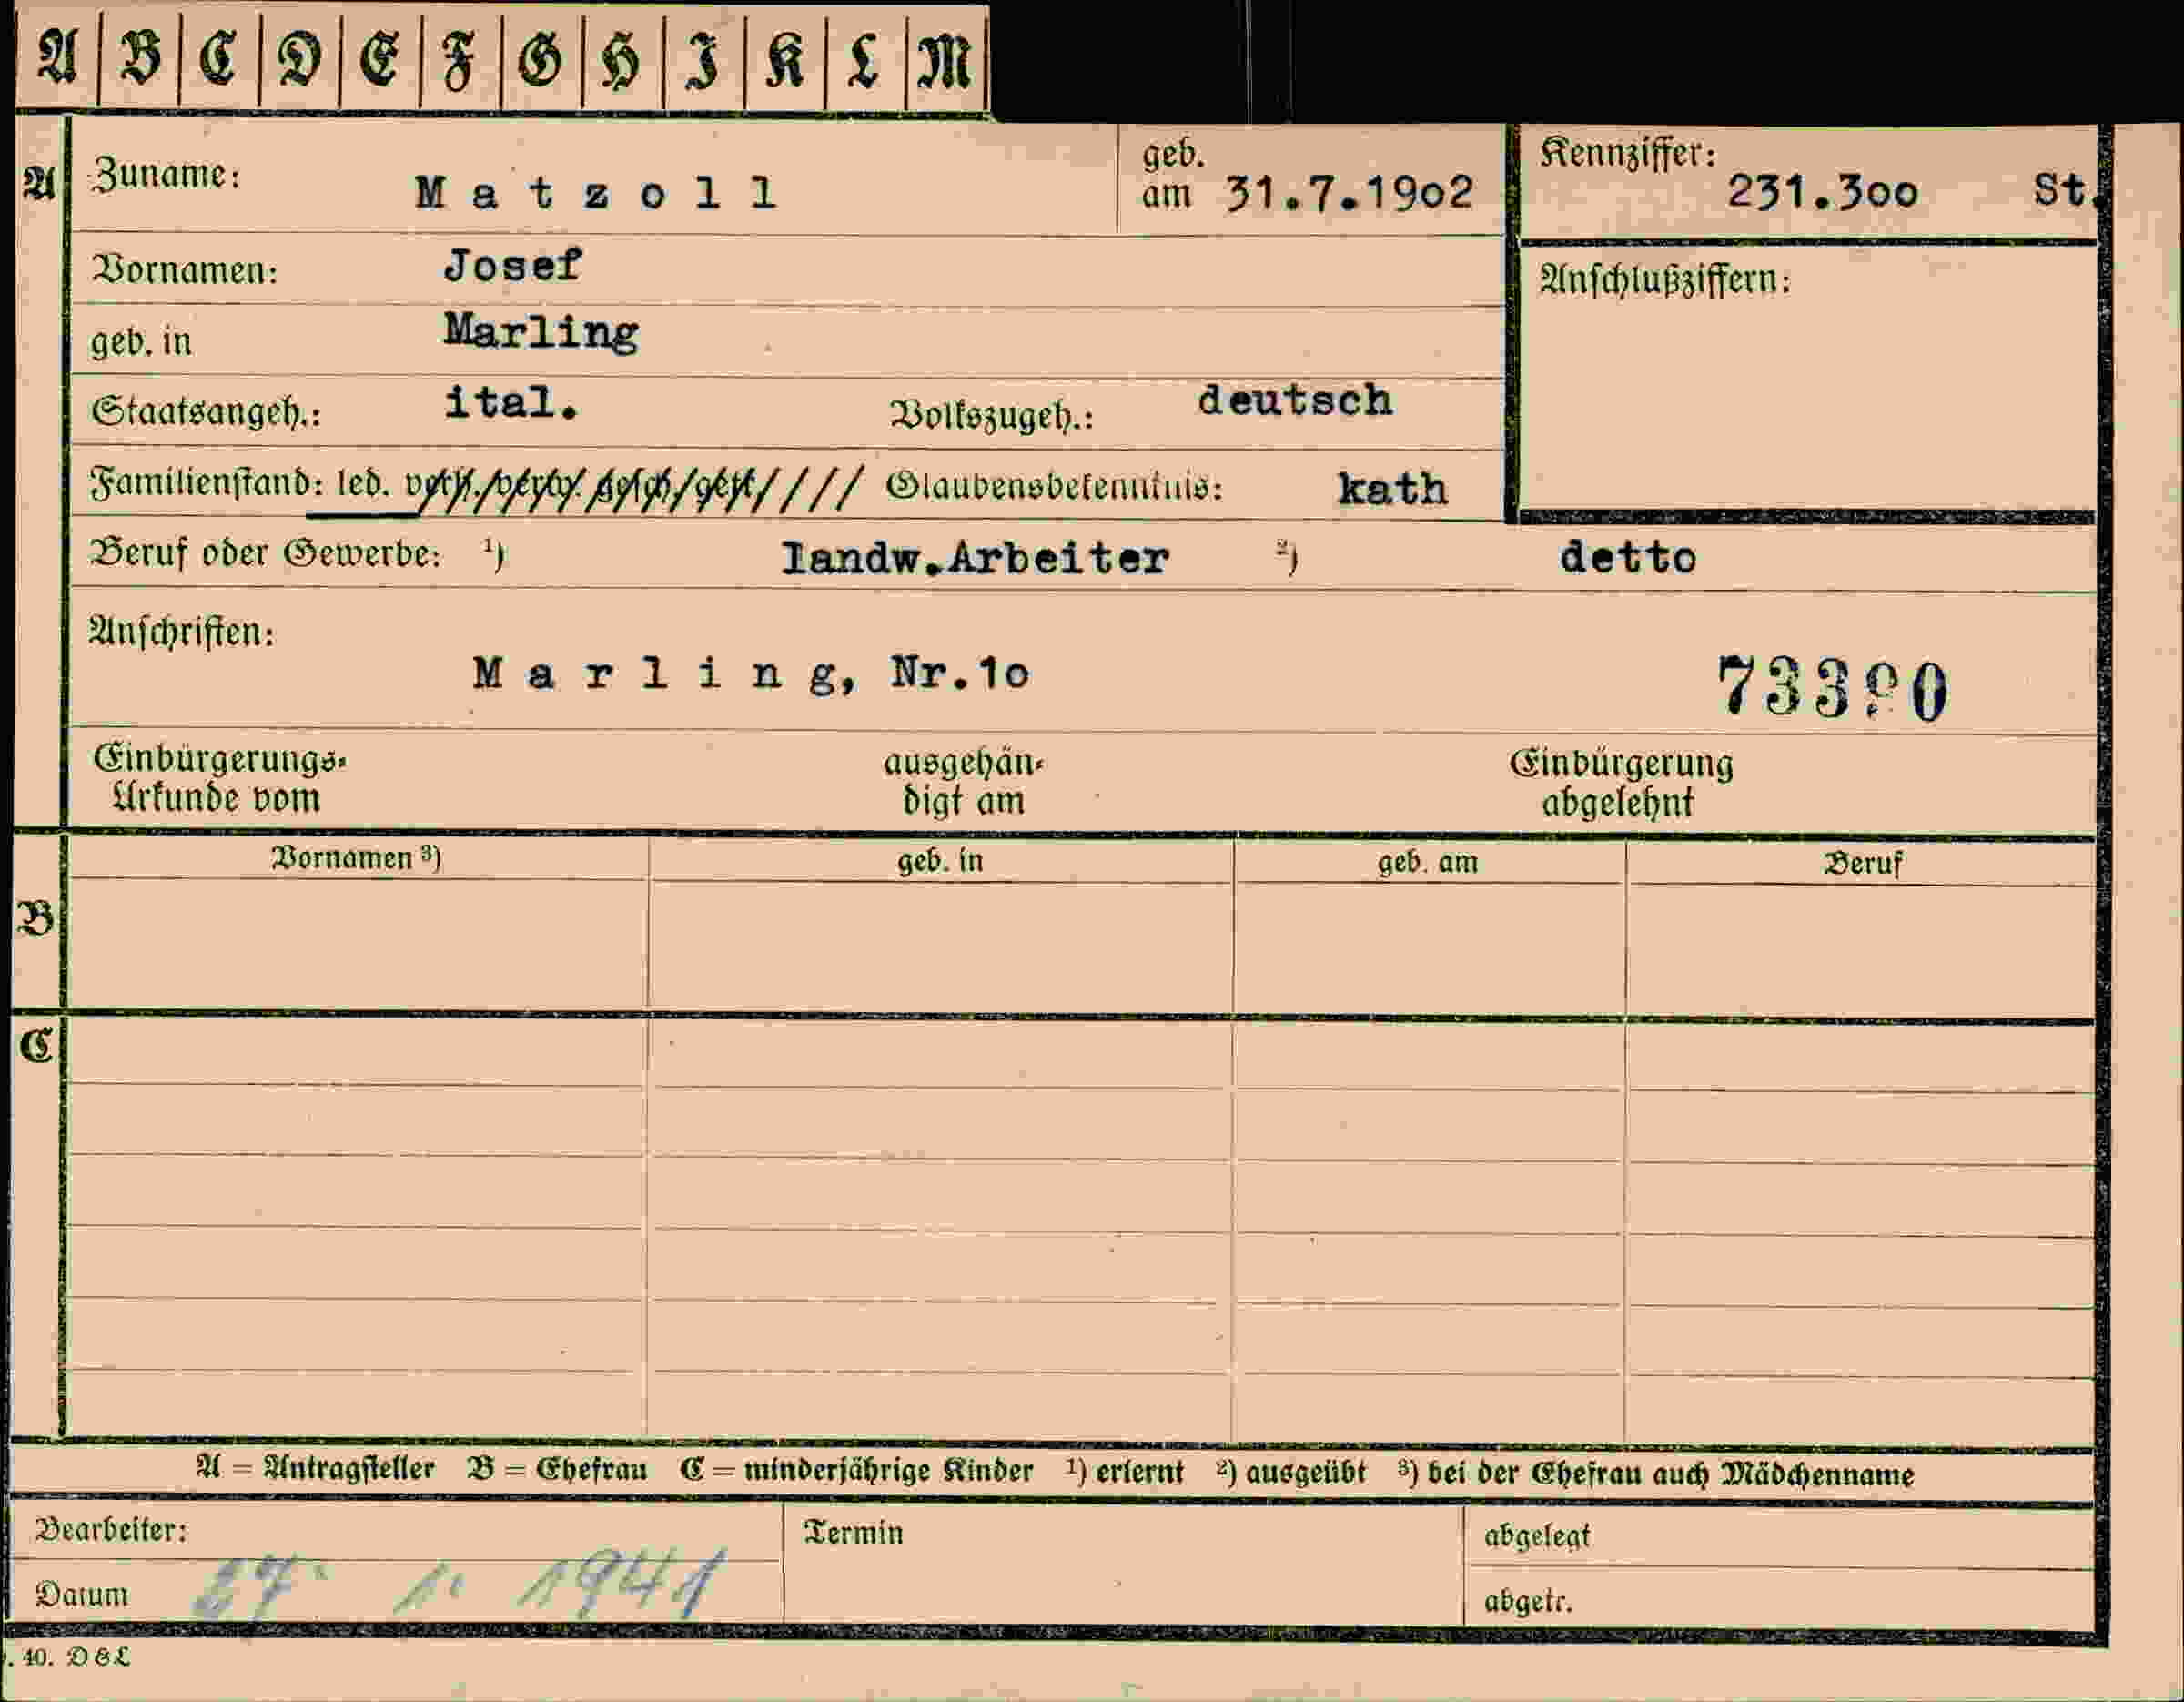 A B C D E F G H I K L M
A Zuname: Matzoll geb. am 31.7.19o2 Kennziffer: 231.3oo St.
Vornamen: Josef Anschlußziffern:
geb. in Marling
Staatsangeh.: ital. Volkszugeh.: deutsch
Familienstand: led. verh. verw. gesch. Glaubensbekenntnis: kath
Beruf oder Gewerbe: ¹) landw.Arbeiter ²) detto
Anschriften:
Marling, Nr.1o
Einbürgerungs- ausgehän- Einbürgerung
Urkunde vom digt am abgelehnt
Vornamen ³) geb. in geb. am Beruf
B
C
A = Antragsteller B = Ehefrau C = minderjährige Kinder ¹) erlernt ²) ausgeübt ³) bei der Ehefrau auch Mädchenname
Bearbeiter: Termin abgelegt
Datum 27. 1. 1941 abgetr.
. 40. D&L